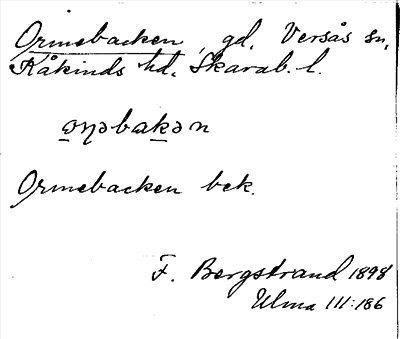 Ormebacken, gd, Versås sn,
Kåkinds hd. Skarab. l.
Ormebacken bek.
F. Bergstrand 1898
Ulma III:186